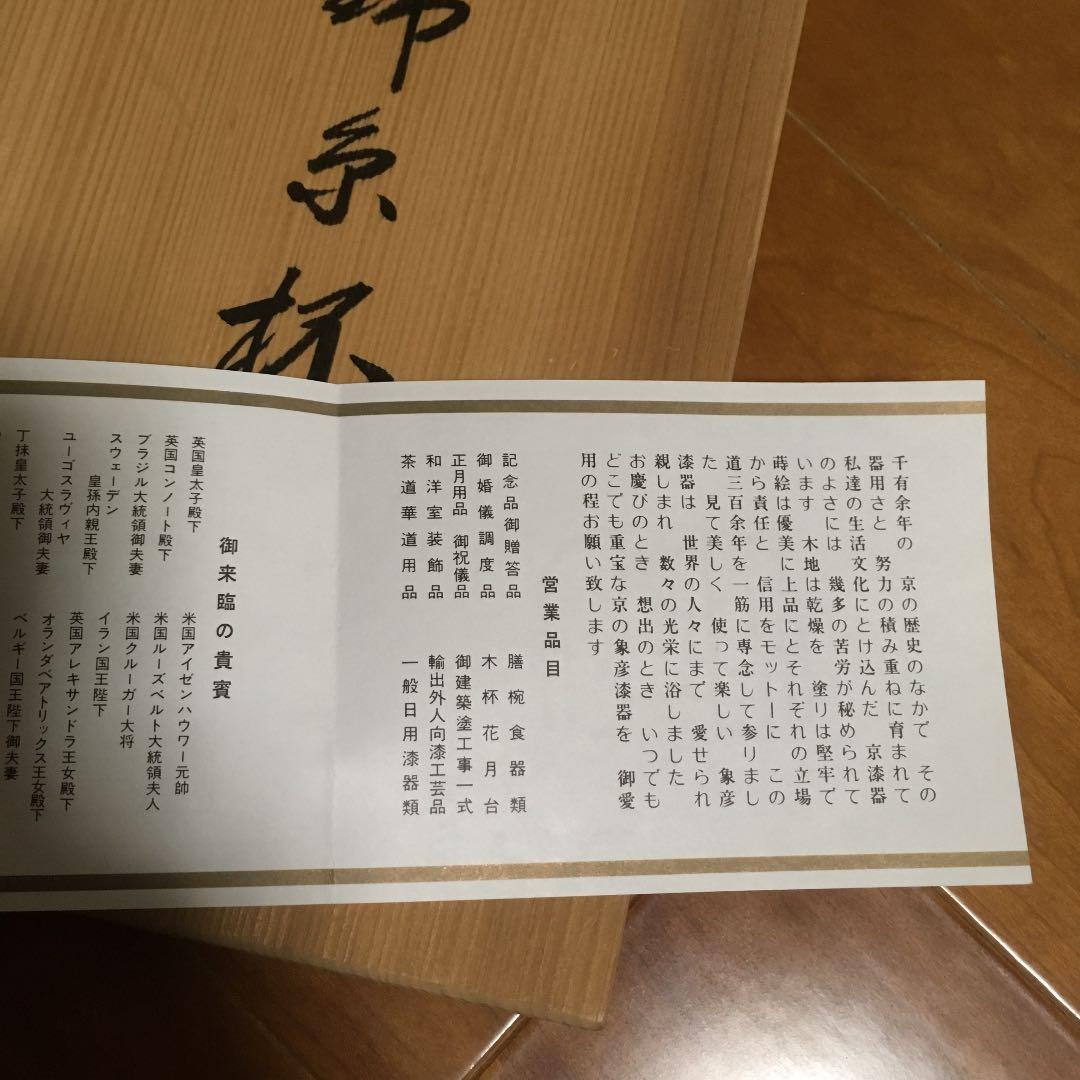 糸
杯
千有余年の 京の歴史のなかで その
器用さと 努力の積み重ねに育まれて
私達の生活文化にとけ込んだ 京漆器
のよさには 幾多の苦労が秘められて
います 木地は乾燥を 塗りは堅牢で
蒔絵は優美に上品にとそれぞれの立場
から責任と 信用をモットーに この
道三百余年を一筋に専念して参りまし
た 見て美しく 使って楽しい 象彦
漆器は 世界の人々にまで 愛せられ
親しまれ 数々の光栄に浴しました
お慶びのとき 想出のとき いつでも
どこでも重宝な京の象彦漆器を 御愛
用の程お願い致します
営業品目
記念品御贈答品
御婚儀調度品
正月用品 御祝儀品
和洋室装飾品
茶道華道用品
膳椀食器類
木杯花月台
御建築塗工事一式
輸出外人向漆工芸品
一般日用漆器類
御来臨の貴賓
英国皇太子殿下
英国コンノート殿下
ブラジル大統領御夫妻
スウェーデン
皇孫内親王殿下
ユーゴスラヴィヤ
大統領御夫妻
丁抹皇太子殿下
米国アイゼンハウワー元帥
米国ルーズベルト大統領夫人
米国クルーガー大将
イラン国王陛下
英国アレキサンドラ王女殿下
オランダベアトリックス王女殿下
ベルギー国王陛下御夫妻